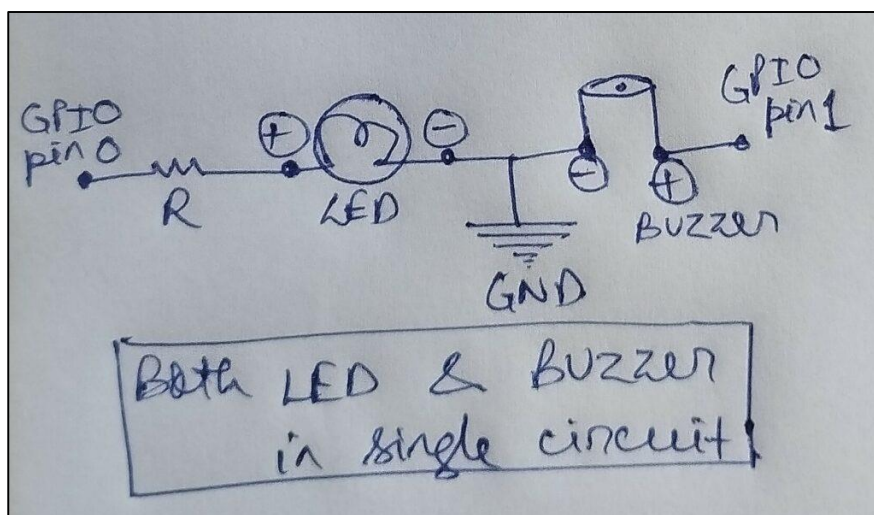 GPIO
pin 0
R
+
LED
-
GND
-
+
BUZZER
GPIO
pin 1
Both LED & BUZZER
in single circuit